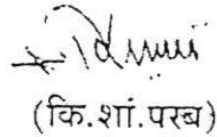 (कि.शां.परब)